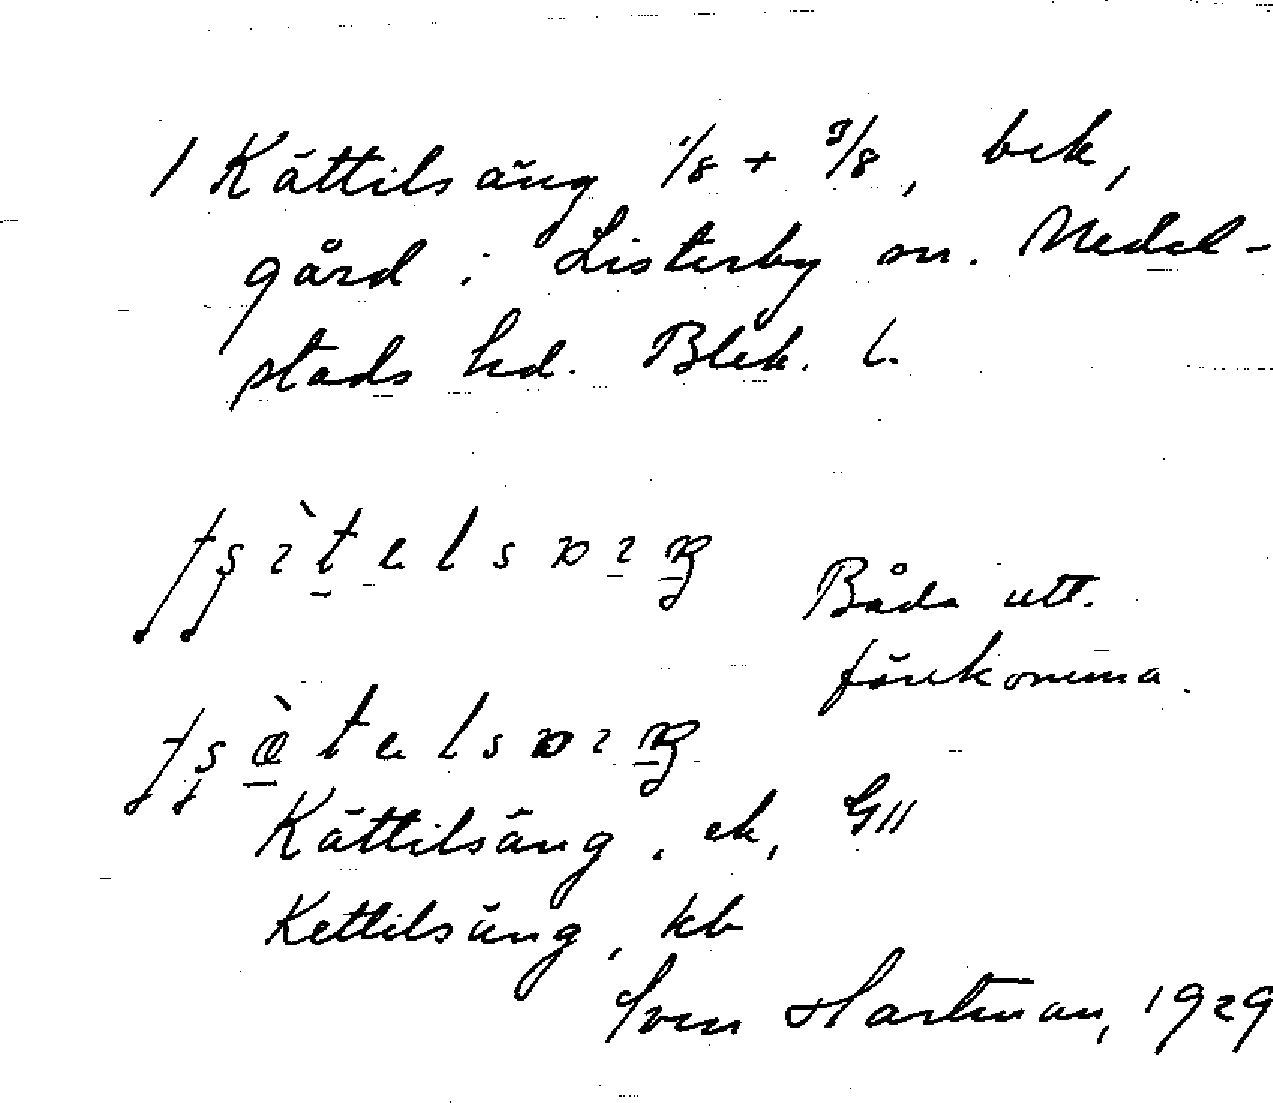 1 Kättilsäng 1/8 + 3/8, bek,
gård i Listerby sn. Medel-
stads hd. Blek. l.
Båda utt.
förekomma.
Kättilsäng, ek, GII
Kettilsäng, kb
Sven Hartman, 1929